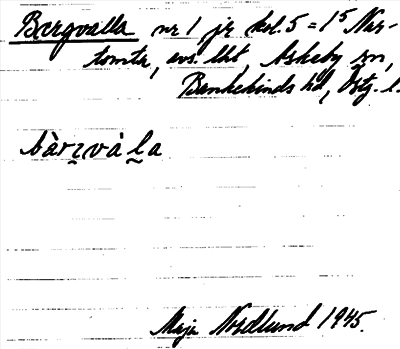 Bergvalla nr 1 jr kol. 5 = 1⁵ Nar-
tomta, avs. lht, Askeby sn,
Bankekinds hd, Östg. l.
bàrʒvàl̰a
Maja Nordlund 1945.